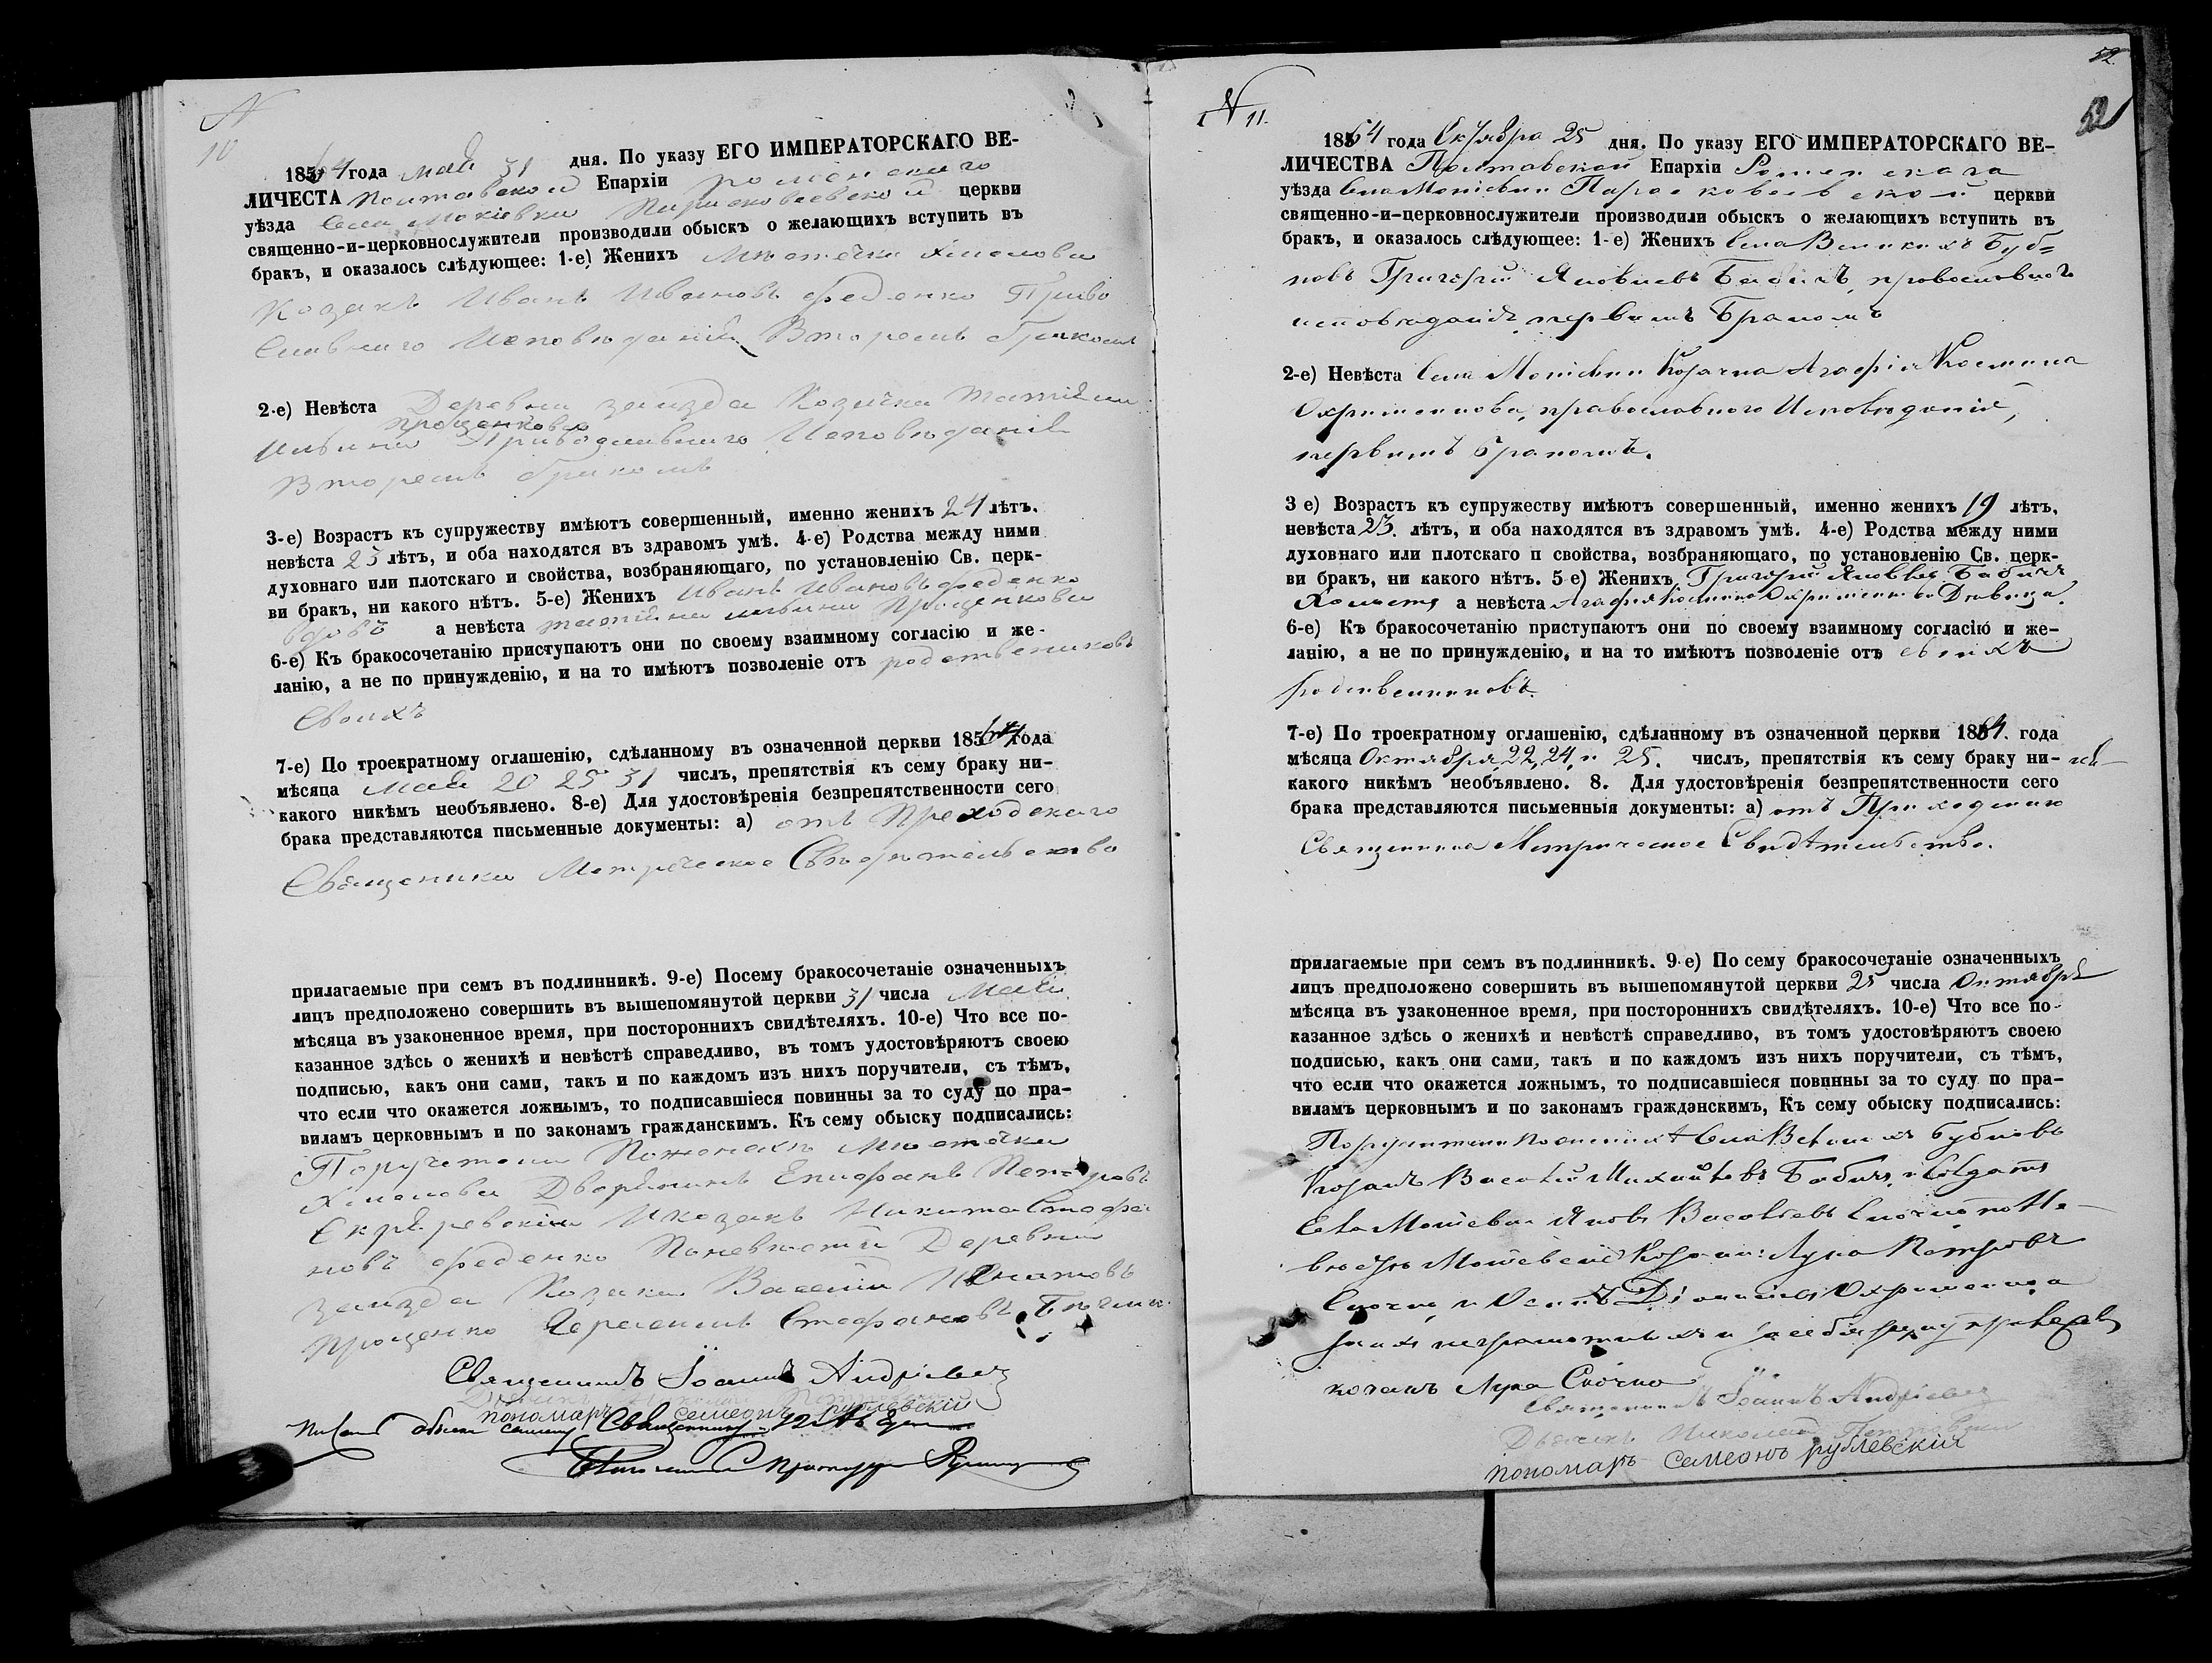 N
10
1864 года мая 31 дня. По указу ЕГО ИМПЕРАТОРСКАГО ВЕ-
ЛИЧЕСТА Полтавской Епархіи роменскаго
уѣзда Села Мокіевки Параскевіевской церкви
священно-и-церковнослужители производили обыскъ о желающихъ вступить въ
бракъ, и оказалось слѣдующее: 1-е) Женихъ Мѣстечка Хмелова
Козакъ Иванъ Ивановъ Феденко Право
славнаго Исповѣданія Вторымъ бракомъ
2-е) Невѣста Деревни Козачка Татіана
Проценкова
Ильина Православнаго Исповѣданія
Вторымъ бракомъ
3-е) Возрастъ къ супружеству имѣютъ совершенный, именно женихъ 24 лѣтъ.
невѣста 23 лѣтъ, и оба находятся въ здравомъ умѣ. 4-е) Родства между ними
духовнаго или плотскаго и свойства, возбраняющаго, по установленію Св. церк-
ви бракъ, ни какого нѣтъ. 5-е) Женихъ Иванъ Ивановъ Феденко
вдовъ а невѣста Татіана Ильина Проценкова
6-е) Къ бракосочетанію приступаютъ они по своему взаимному согласію и же-
ланію, а не по принужденію, и на то имѣютъ позволеніе отъ родствениковъ
Своихъ
7-е) По троекратному оглашенію, сдѣланному въ означенной церкви 1864 года
мѣсяца Мая 20 25 31 числъ, препятствія къ сему браку ни-
какого никѣмъ необъявлено. 8-е) Для удостовѣренія безпрепятственности сего
брака представляются письменные документы: а) отъ Приходскаго
Священика Метрическое Свидѣтельство
прилагаемые при семъ въ подлинникѣ. 9-е) Посему бракосочетаніе означенныхъ
лицъ предположено совершить въ вышепомянутой церкви 31 числа Мая
мѣсяца въ узаконенное время, при постороннихъ свидѣтеляхъ. 10-е) Что все по-
казанное здѣсь о женихѣ и невѣстѣ справедливо, въ томъ удостовѣряютъ своею
подписью, какъ они сами, такъ и по каждомъ изъ нихъ поручители, съ тѣмъ,
что если что окажется ложнымъ, то подписавшіеся повинны за то суду по пра-
виламъ церковнымъ и по законамъ гражданскимъ. Къ сему обыску подписались:
Поручители Поженихѣ Мѣстечка
Хмелова Дворянинъ Епифанъ Петровъ
Икозакъ Никита Стефа
новъ Феденко Поневѣстѣ Деревни
Козаки Василій Игнатовъ
Проценко Стефановъ
Священникъ Іоаннъ Андріевъ
пономаръ семеонъ рублевскій
N 11.
52
52
1864 года Октября 25 дня. По указу ЕГО ИМПЕРАТОРСКАГО ВЕ-
ЛИЧЕСТВА Полтавской Епархіи Роменскаго
уѣзда Села Мокіевки Параскевіевской церкви
священно-и-церковнослужители производили обыскъ о желающихъ вступить въ
бракъ, и оказалось слѣдующее: 1-е) Женихъ Села Великихъ Буб=
новъ Григорій Яковлевъ Бабичъ, православнаго
исповѣданія первымъ Бракомъ
2-е) Невѣста Села Мокіевки Козачка Агафія Космина
Охрименкова, православного Исповѣданія,
первымъ бракомъ.
3 е) Возрастъ къ супружеству имѣютъ совершенный, именно женихъ 19 лѣтъ,
невѣста 23. лѣтъ, и оба находятся въ здравомъ умѣ. 4-е) Родства между ними
духовнаго или плотскаго п свойства, возбраняющаго, по установленію Св. церк-
ви бракъ, ни какого нѣтъ. 5 е) Женихъ Григорій Яковлев Бабичъ
Холостъ а невѣста Агафія Космина Охрименкова Дѣвица.
6-е) Къ бракосочетанію приступаютъ они по своему взаимному согласію и же-
ланію, а не по принужденію, и на то имѣютъ позволеніе отъ своихъ
родственниковъ.
7-е) По троекратному оглашенію, сдѣланному въ означенной церкви 1864. года
мѣсяца Октября 22, 24, и 25. числъ, препятствія къ сему браку ни-
какого никѣмъ необъявлено. 8. Для удостовѣренія безпрепятственности сего
брака представляются письменныя документы: а) отъ Приходскаго
Священника Метрическое Свидѣтельство.
прилагаемые при семъ въ подлинникѣ. 9-е) По сему бракосочетаніе означенныхъ
лицъ предположено совершить въ вышепомянутой церкви 25 числа Октября
мѣсяца въ узаконенное время, при постороннихъ свидѣтеляхъ. 10-е) Что все по-
казанное здѣсь о женихѣ и невѣстѣ справедливо, въ томъ удостовѣряютъ своею
подписью, какъ они сами, такъ и по каждомъ изъ нихъ поручители, съ тѣмъ,
что если что окажется ложнымъ, то подписавшіеся повинны за то суду по пра-
виламъ церковнымъ и по законамъ гражданскимъ, Къ сему обыску подписались:
Поручители Поженихѣ Села Великихъ Бубновъ
Козакъ Василій Михайловъ Бабичъ, и Солдатъ
Села Мокіевки Яковъ Васильевъ Скочко по Не-
вѣстѣ Мокіевскіе Козаки: Лука Петровъ
Скочко, и Осипъ Охрименко, а
козакъ Лука Скочко
Священникъ Іоаннъ Андріевъ
Дьячекъ Николай
пономаръ Семеонъ рублевскій